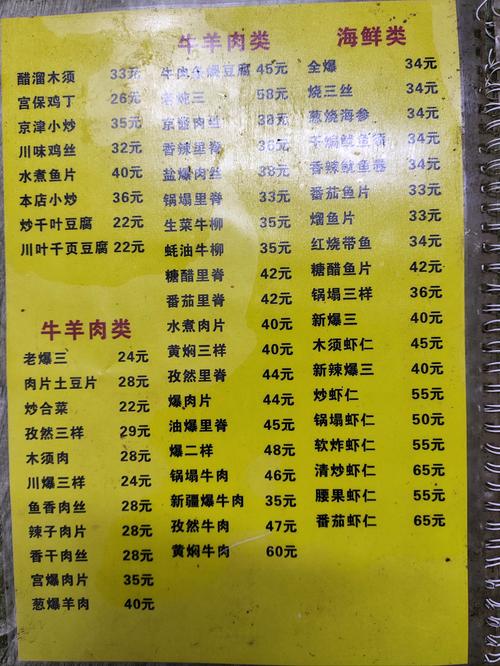 醋溜木须 33元
宫保鸡丁 26元
京津小炒 35元
川味鸡丝 32元
水煮鱼片 40元
本店小炒 36元
炒千叶豆腐 22元
川叶千页豆腐 22元
牛羊肉类
老爆三 24元
肉片土豆片 28元
炒合菜 22元
孜然三样 29元
木须肉 28元
川爆三样 24元
鱼香肉丝 28元
辣子肉片 28元
香干肉丝 28元
宫爆肉片 35元
葱爆羊肉 40元
牛羊肉类
牛肉 豆腐 45元
老炖三 58元
京酱肉丝 38元
香辣里脊
盐爆肉丝 38元
锅塌里脊 33元
生菜牛柳 35元
蚝油牛柳 35元
糖醋里脊 42元
番茄里脊 42元
水煮肉片 40元
黄焖三样 40元
孜然里脊 44元
爆肉片 44元
油爆里脊 45元
爆二样 48元
锅塌牛肉 46元
新疆爆牛肉 35元
孜然牛肉 47元
黄焖牛肉 60元
海鲜类
全爆 34元
烧三丝 34元
葱烧海参 34元
干煸鱿鱼须 34元
香辣鱿鱼卷 34元
番茄鱼片 33元
熘鱼片 33元
红烧带鱼 34元
糖醋鱼片 42元
锅塌三样 36元
新爆三 40元
木须虾仁 45元
新辣爆三 40元
炒虾仁 55元
锅塌虾仁 50元
软炸虾仁 55元
清炒虾仁 65元
腰果虾仁 55元
番茄虾仁 65元